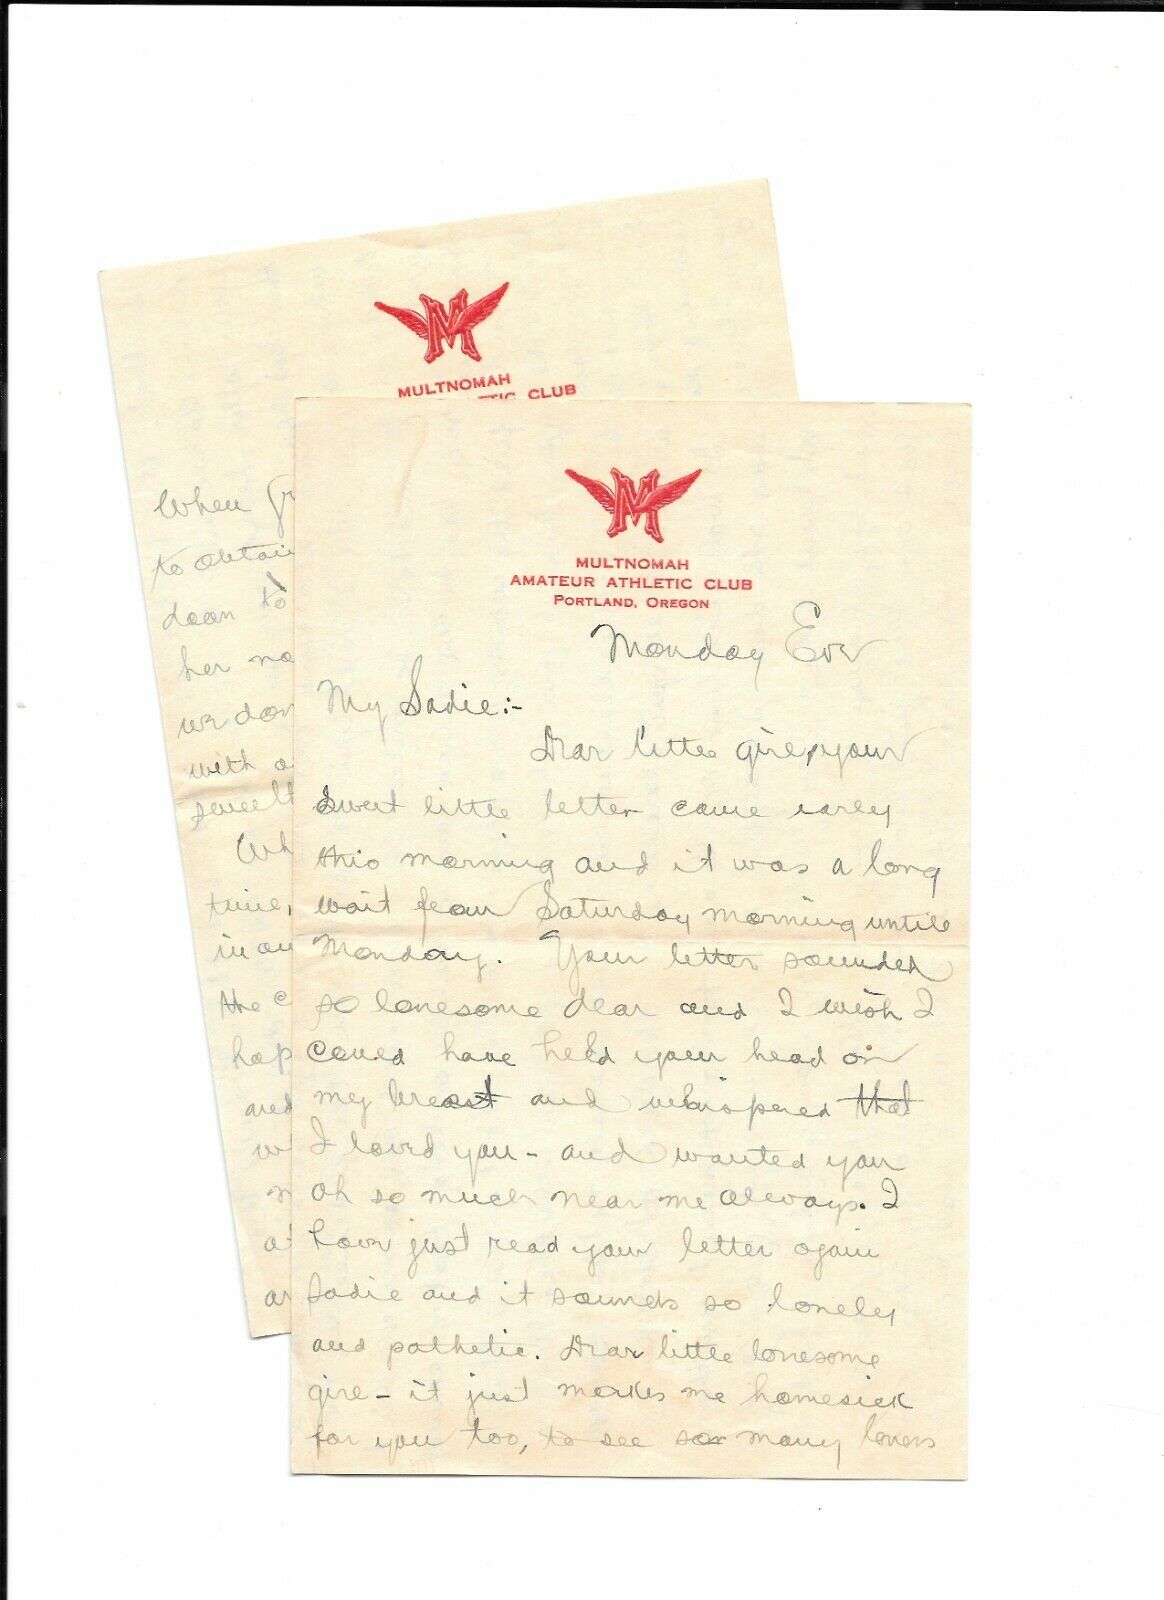 MULTNOMAH
CLUB
When
to obtain
down to
her
we don
with a
Wh
time,
in ou
the c
hap
and
w
a
ar
MULTNOMAH
AMATEUR ATHLETIC CLUB
PORTLAND, OREGON
Monday Eve
My Sadie:-
Dear little girl, your
sweet little letter came early
this morning and it was a long
wait from Saturday morning until
Monday. Your letter sounded
so lonesome dear and I wish I
could have held your head on
my breast and whispered that
I loved you - and wanted you
oh so much near me always. I
have just read your letter again
Sadie and it sounds so lonely
and pathetic. Dear little lonesome
girl - it just makes me homesick
for you too, to see so many lovers